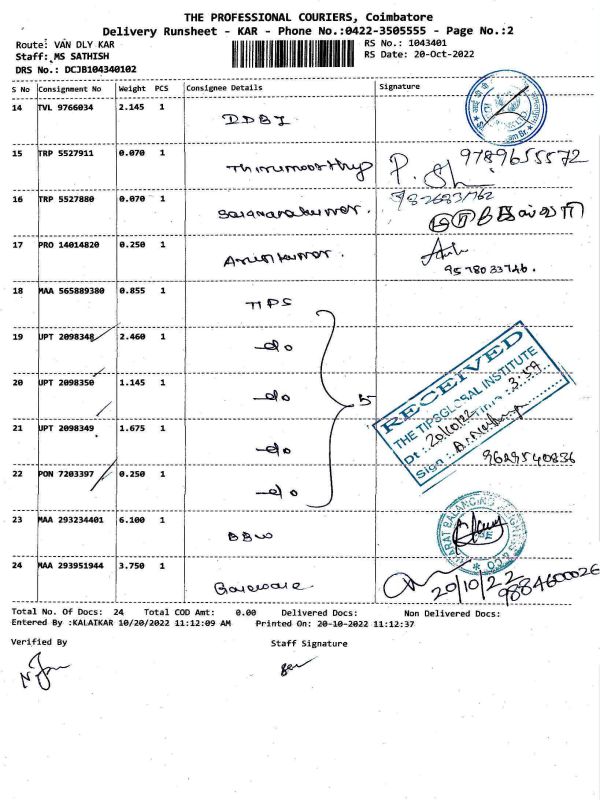 THE PROFESSIONAL COURIERS, Coimbatore
Delivery Runsheet - KAR - Phone No.:0422-3505555 - Page No.:2
Route: VAN DLY KAR
RS No.: 1043401
Staff: MS SATHISH
RS Date: 20-Oct-2022
DRS No.: DCJB104340102
S No Consignment No Weight PCS Consignee Details Signature
14 TVL 9766034 2.145 1
15 TRP 5527911 0.070 1 Thirumoorthy 9789655572
16 TRP 5527880 0.070 1
17 PRO 14014820 0.250 1 Arunkumar.
9578033746.
18 MAA 565889380 0.855 1 TIPS
19 UPT 2098348 2.460 1 do
20 UPT 2098350 1.145 1 do
5
21 UPT 2098349 1.675 1 do
22 PON 7203397 0.250 1 do
RECEIVED
THE TIPSGLOBAL INSTITUTE
Dt : 20/10/22 Time : 3:59
Sign :
9629540836
23 MAA 293234401 6.100 1
24 MAA 293951944 3.750 1
20/10/22
9884600026
Total No. Of Docs: 24 Total COD Amt: 0.00 Delivered Docs: Non Delivered Docs:
Entered By :KALAIKAR 10/20/2022 11:12:09 AM Printed On: 20-10-2022 11:12:37
Verified By Staff Signature